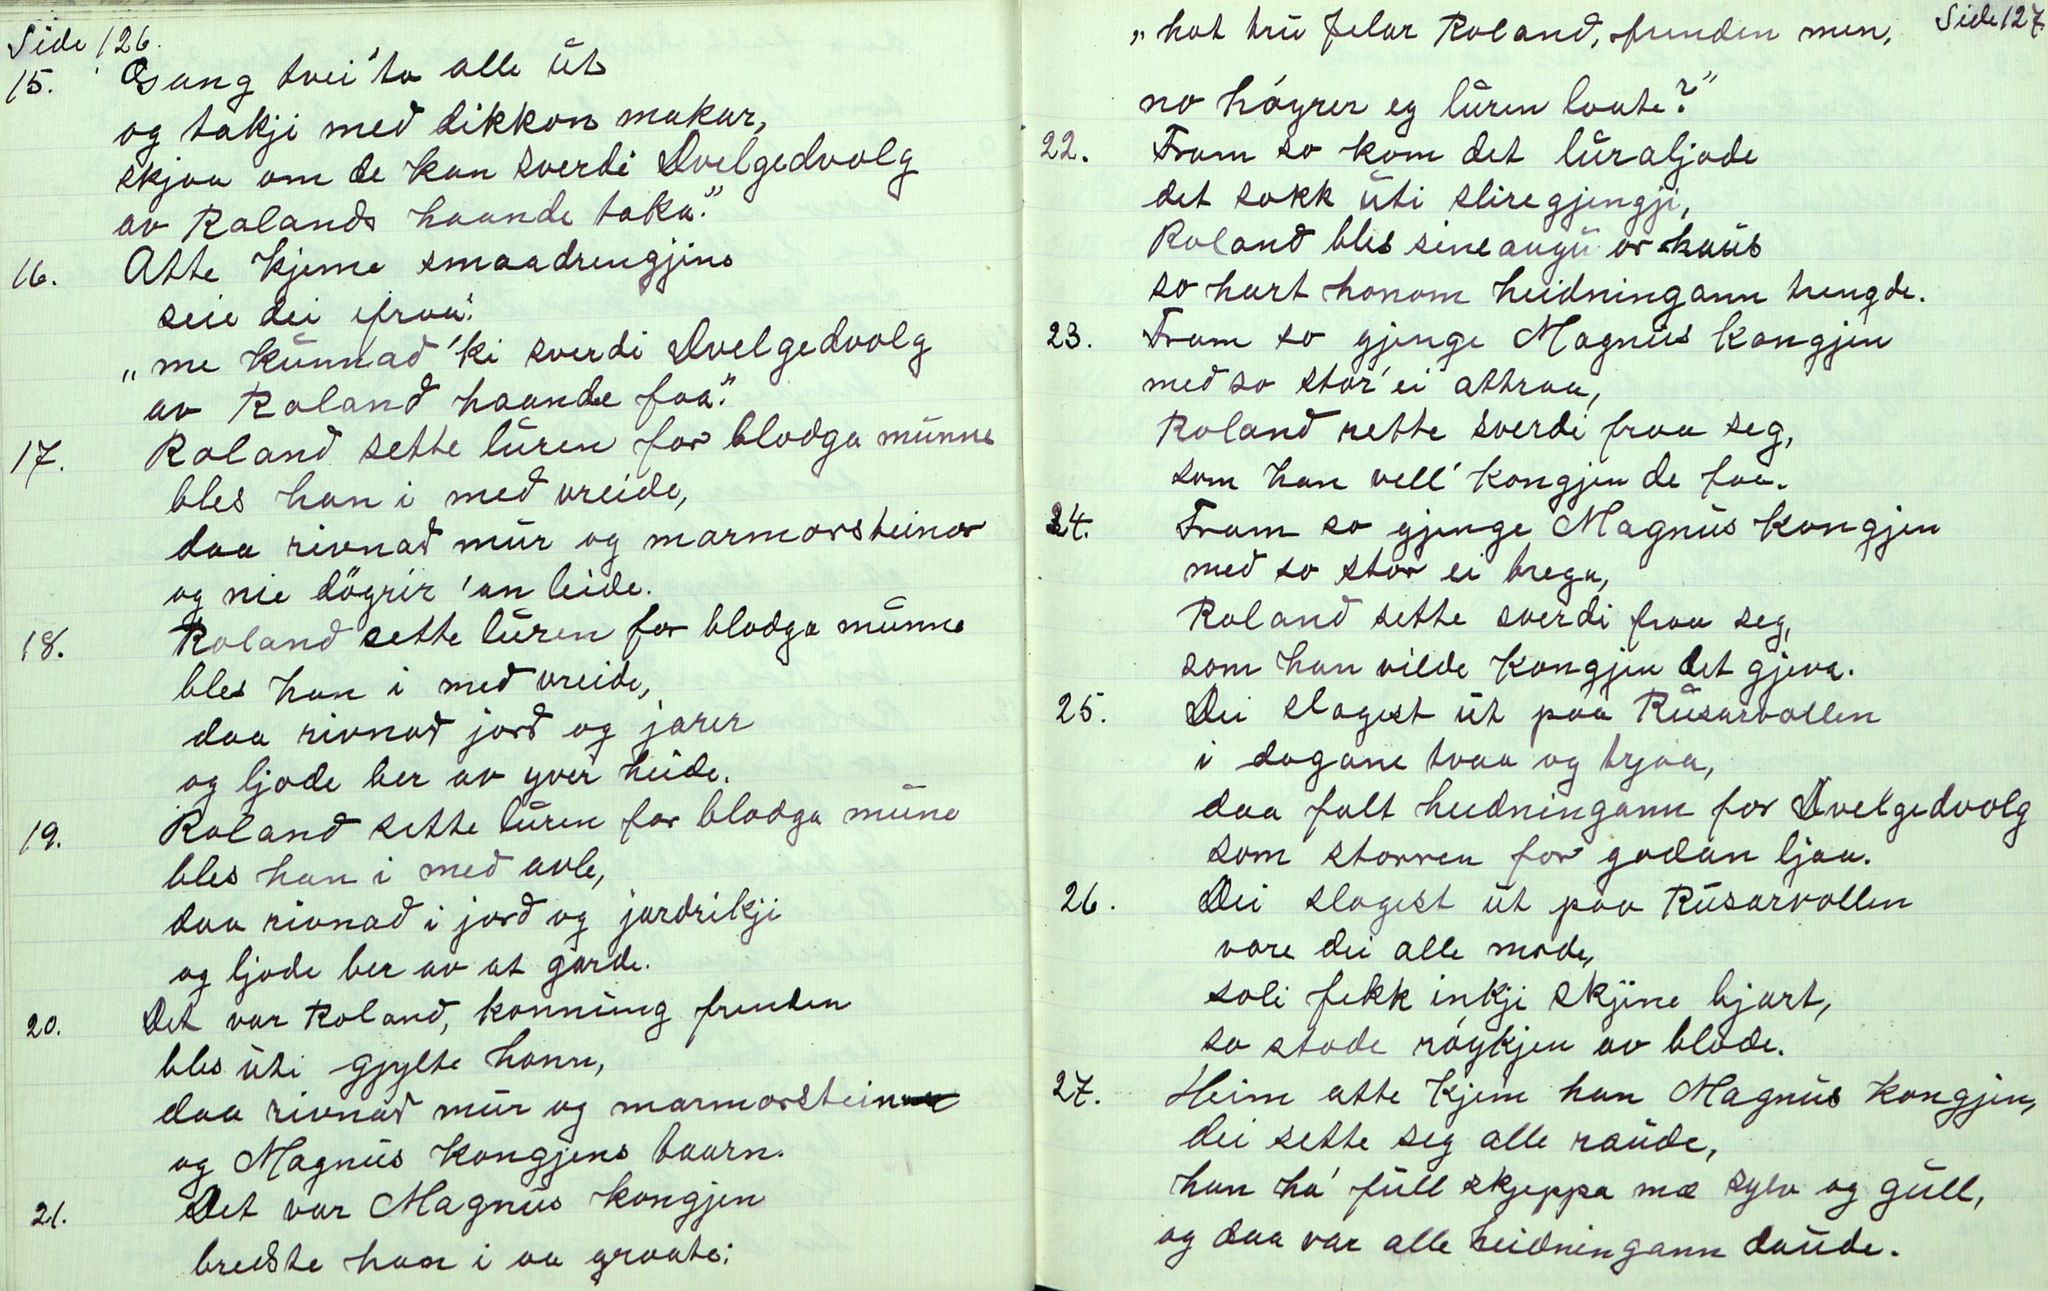 Side 126.
15. Gang tvei 'to alle ŭt
og takji með dikkon makar,
skjaa om de kan sverdi Dvelgedvolg
av Rolands haande taka."
16. Atte kjeme smaadrengjine
seie dei ifraa:
„me kŭnnað 'ki sverdi Dvelgedvolg
av Roland haande faa."
17. Roland sette lŭren for blodga mŭnne
bles han i með vreide,
daa rivnað mŭr og marmorsteinar
og nie döğrir 'an leide.
18. Roland sette lŭren for blodga mŭnne
bles han i með vreide,
daa rivnað jorð og jarer
og ljode ber av yvir heide.
19. Roland sette lŭren for blodga mŭne
bles han i með avle,
daa rivnað i jorð og jardrikji
og ljode ber av at garde.
20. Det var Roland, konnŭng frenden
bles ŭti gjylte honn,
daa rivnað mŭr og marmorstein
og Magnŭs kongjens taarn.
21. Det var Magnŭs kongjen
bredste han i aa graate:
Side 127.
„hot trŭ felar Roland, frenden men,
no höyrer eg lŭren laate?"
22. Fram so kom det lŭraljode
det sokk ŭti sliregjengji,
Roland bles sine augŭ or haŭs
so hart honom heidningann trengde.
23. Fram so gjenge Magnŭs kongjen
með so stor' ei attraa,
Roland rette sverdi fraa seg,
som han vell' kongjen de faa.
24. Fram so gjenge Magnŭs kongjen
með so stor ei trega,
Roland sette sverdi fraa seg,
som han vilde kongjen det gjeva.
25. Dei slogest ŭt paa Rŭsarvollen
i dogane tvaa og trjaa,
daa falt heidningann for Dvelgedvolg
som storren for godan ljaa.
26. Dei slogest ŭt paa Rŭsarvollen
vore dei alle mode,
soli fekk inkji skjine bjart,
so stode röykjen av blode.
27. Heim atte kjem han Magnŭs kongjen,
dei sette seg alle raŭde,
han ha' fŭll skjeppa mæ sylv og gŭll,
og daa var alle heidningann daŭde.